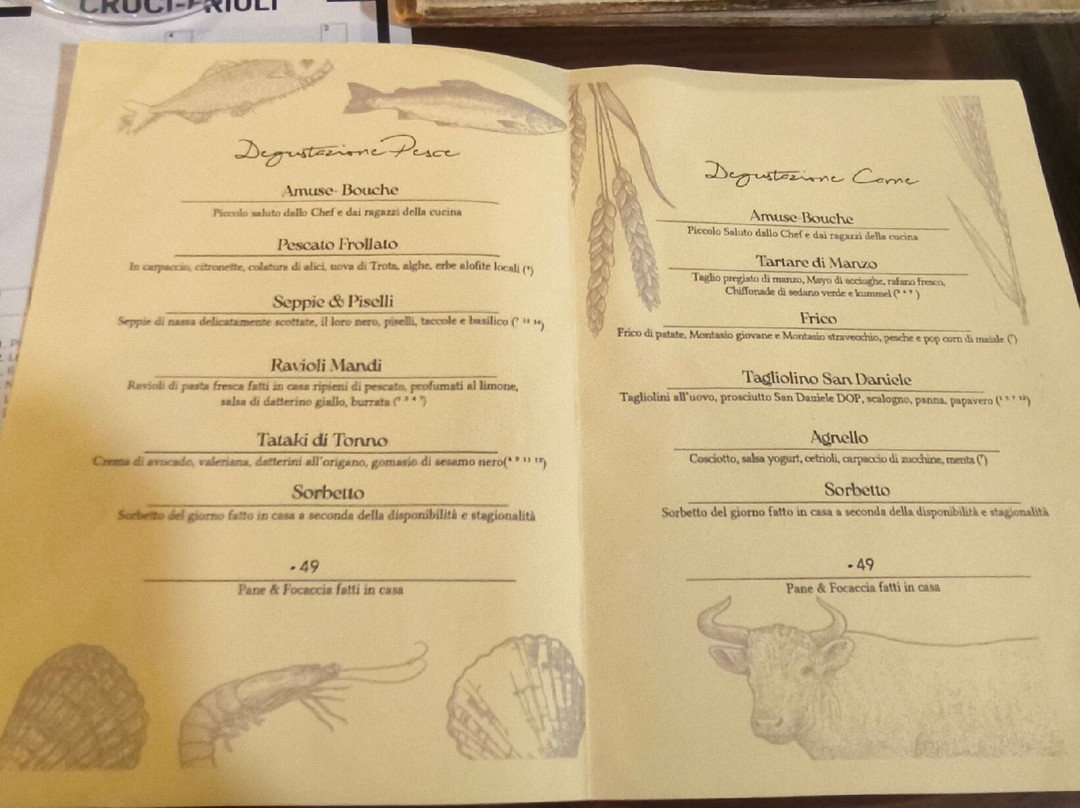 CRUCI-FRIULI
Degustazione Pesce
Amuse-Bouche
Piccolo saluto dallo Chef e dai ragazzi della cucina
Pescato Frollato
In carpaccio, citronette, colatura di alici, uova di Trota, alghe, erbe alofite locali (⁴)
Seppie & Piselli
Seppie di nassa delicatamente scottate, il loro nero, piselli, taccole e basilico
Ravioli Mandi
Ravioli di pasta fresca fatti in casa ripieni di pescato, profumati al limone,
salsa di datterino giallo, burrata
Tataki di Tonno
Crema di avocado, valeriana, datterini all'origano, gomasio di sesamo nero
Sorbetto
Sorbetto del giorno fatto in casa a seconda della disponibilità e stagionalità
- 49
Pane & Focaccia fatti in casa
Degustazione Carne
Amuse-Bouche
Piccolo Saluto dallo Chef e dai ragazzi della cucina
Tartare di Manzo
Taglio pregiato di manzo, Mayo di acciughe, rafano fresco,
Chiffonade di sedano verde e kummel
Frico
Frico di patate, Montasio giovane e Montasio stravecchio, pesche e pop corn di maiale (⁷)
Tagliolino San Daniele
Tagliolini all'uovo, prosciutto San Daniele DOP, scalogno, panna, papavero (¹ ³ ⁷ ¹²)
Agnello
Cosciotto, salsa yogurt, cetrioli, carpaccio di zucchine, menta (⁷)
Sorbetto
Sorbetto del giorno fatto in casa a seconda della disponibilità e stagionalità
- 49
Pane & Focaccia fatti in casa